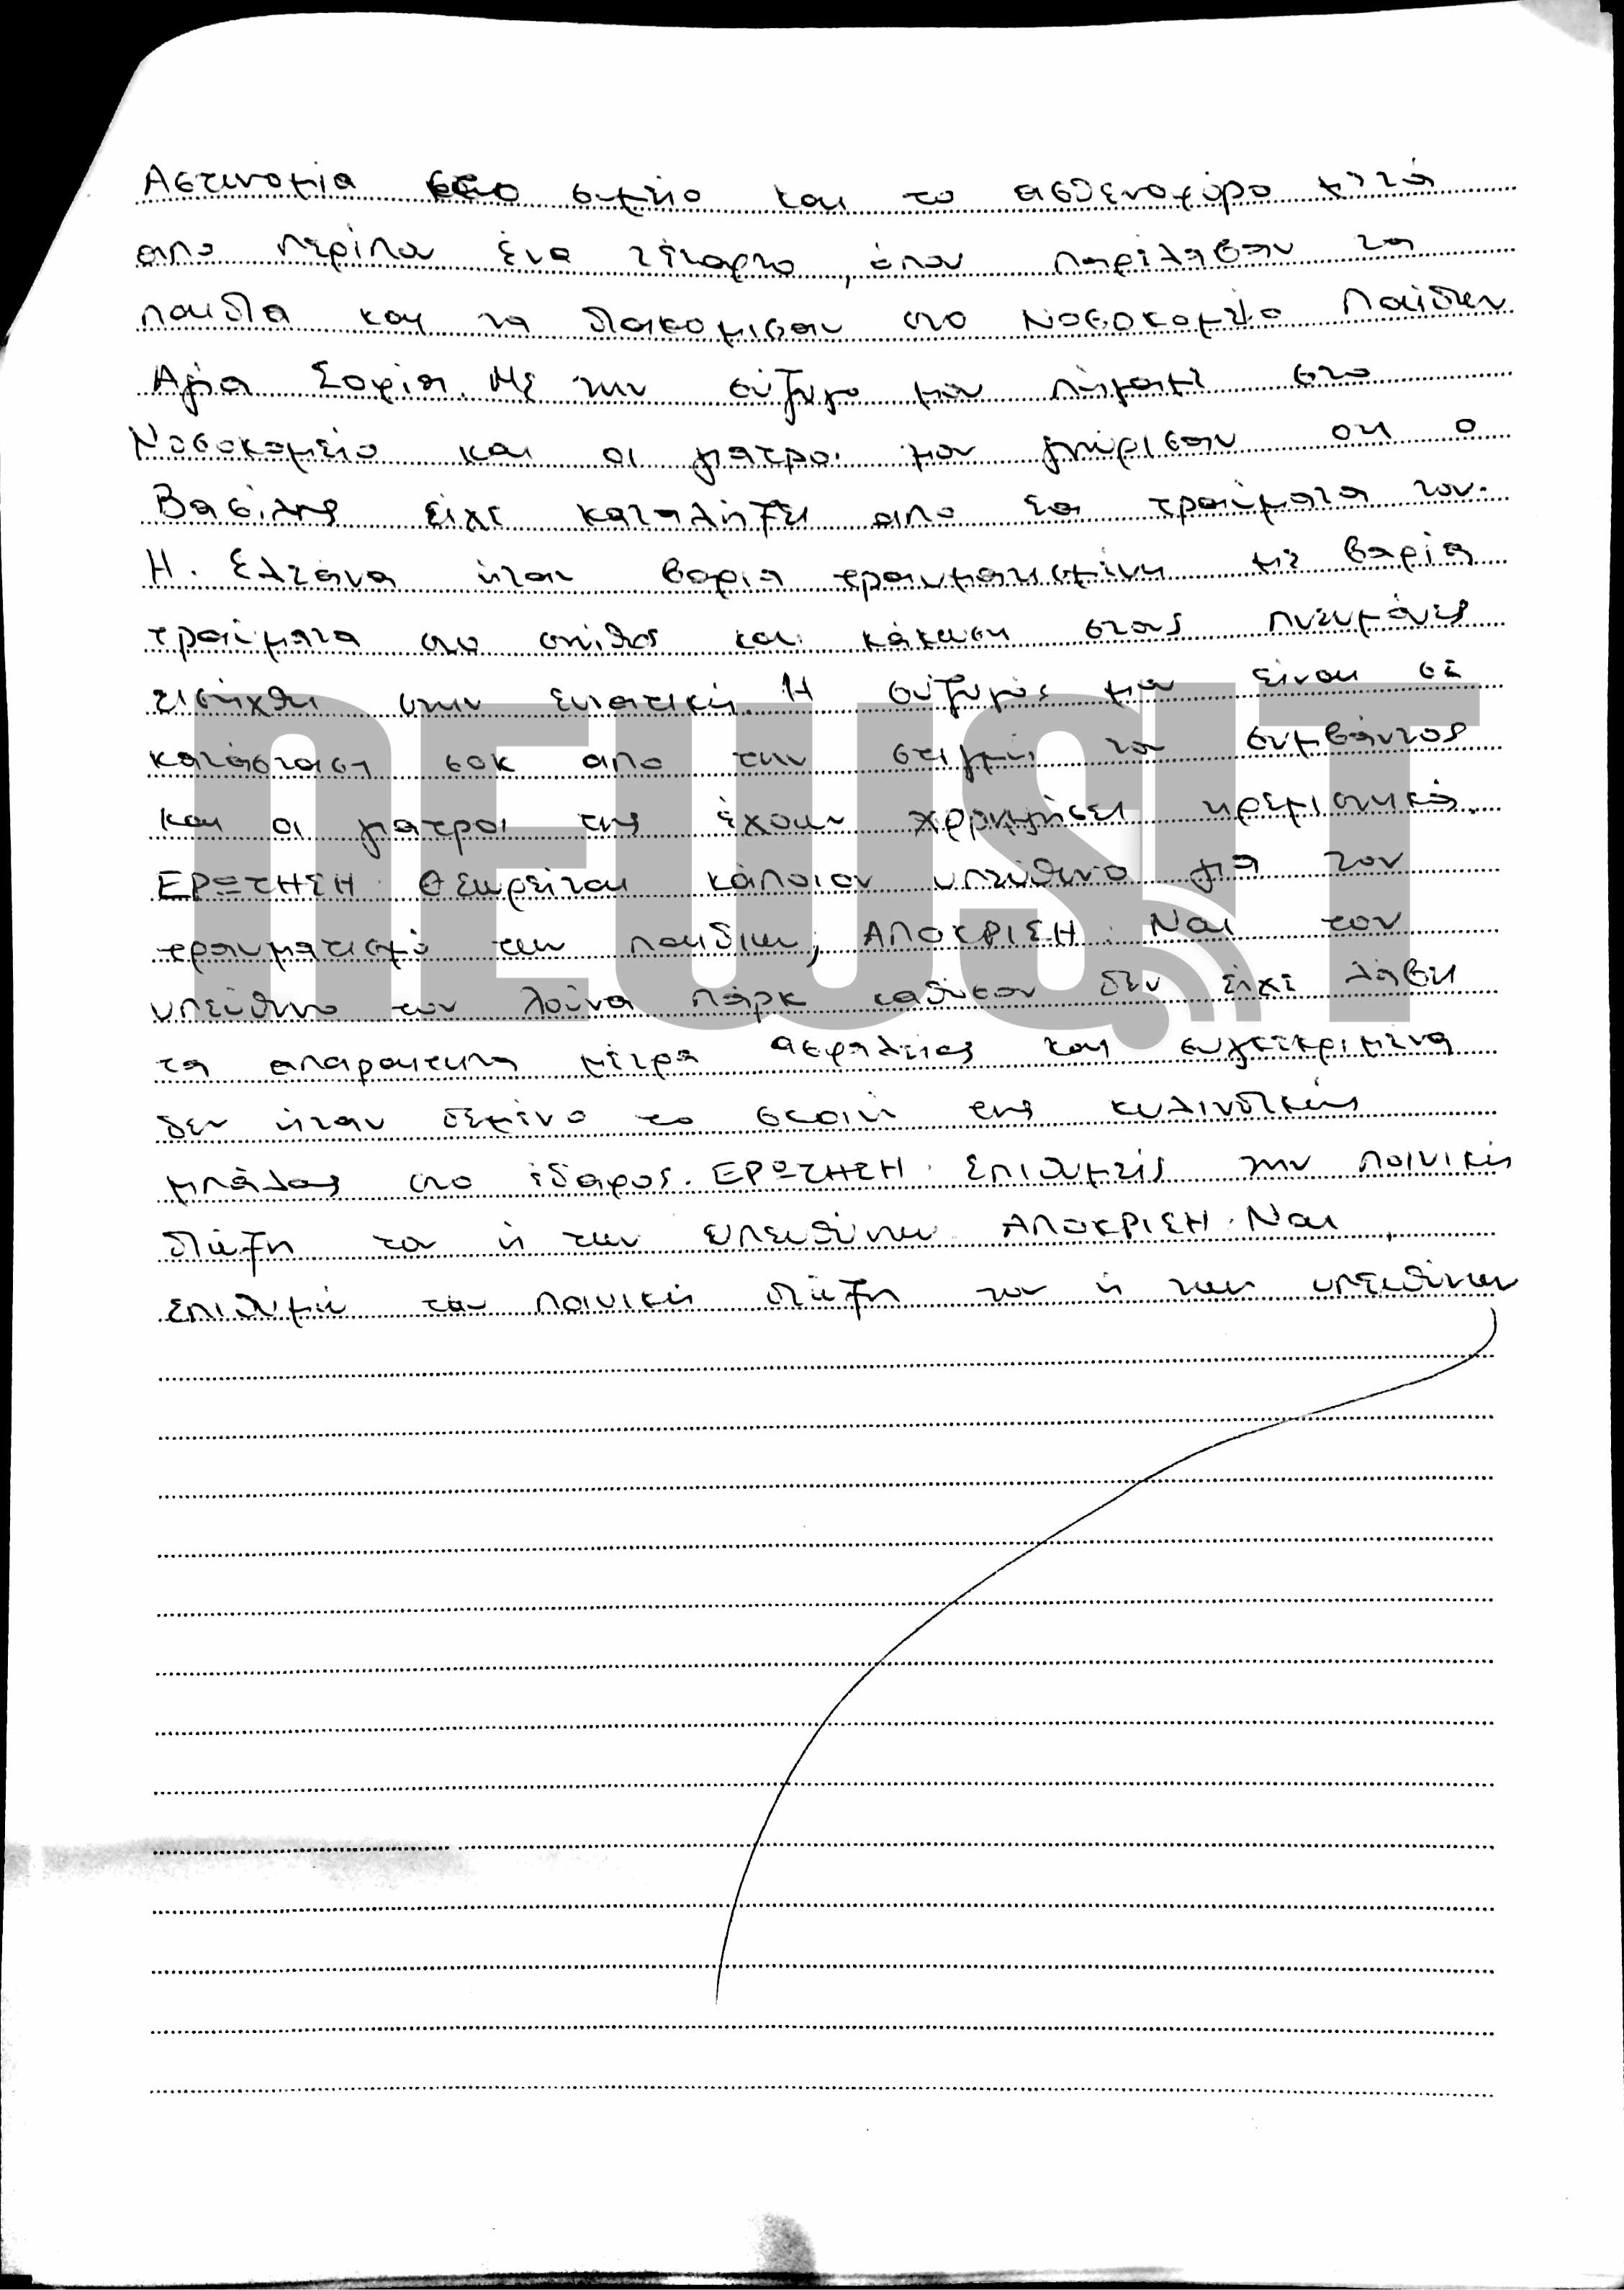 Αστυνομία στο σημείο και το ασθενοφόρο μετά
απο περίπου ένα τέταρτο, όπου παρέλαβαν τα
παιδιά και τα διακόμισαν στο Νοσοκομείο Παίδων
Αγία Σοφία. Με την σύζυγο μου πήγαμε στο
Νοσοκομείο και οι γιατροι μου γνώρισαν οτι ο
Βασίλης είχε καταλήξει απο τα τραύματα του.
Η Ελτάνα ήταν βαριά τραυματισμένη με βαρία
τραύματα στο στήθος και κάκωση στους πνευμόνες
εισήχθει στην εντατική. Η σύζυγός μου είναι σε
κατάσταση σοκ απο την στιγμή του συμβάντος
και οι γιατροι της έχουν χορηγήσει ηρεμιστικά.
ΕΡΩΤΗΣΗ: Θεωρείται κάποιον υπεύθυνο για τον
τραυματισμό των παιδιων; ΑΠΟΚΡΙΣΗ: Ναι τον
υπεύθυνο του λούνα πάρκ καθόσον δεν είχε λάβει
τα απαραιτητα μέτρα ασφαλείας και συγκεκριμένα
δεν ήταν δεμένο το σκοινί της κυλινδικής
μπάλας στο έδαφος. ΕΡΩΤΗΣΗ: Επιθυμείς την ποινική
δίωξη του ή των υπευθύνων ΑΠΟΚΡΙΣΗ: Ναι,
επιθυμώ την ποινική δίωξη του ή των υπευθύνων
NEWSIT